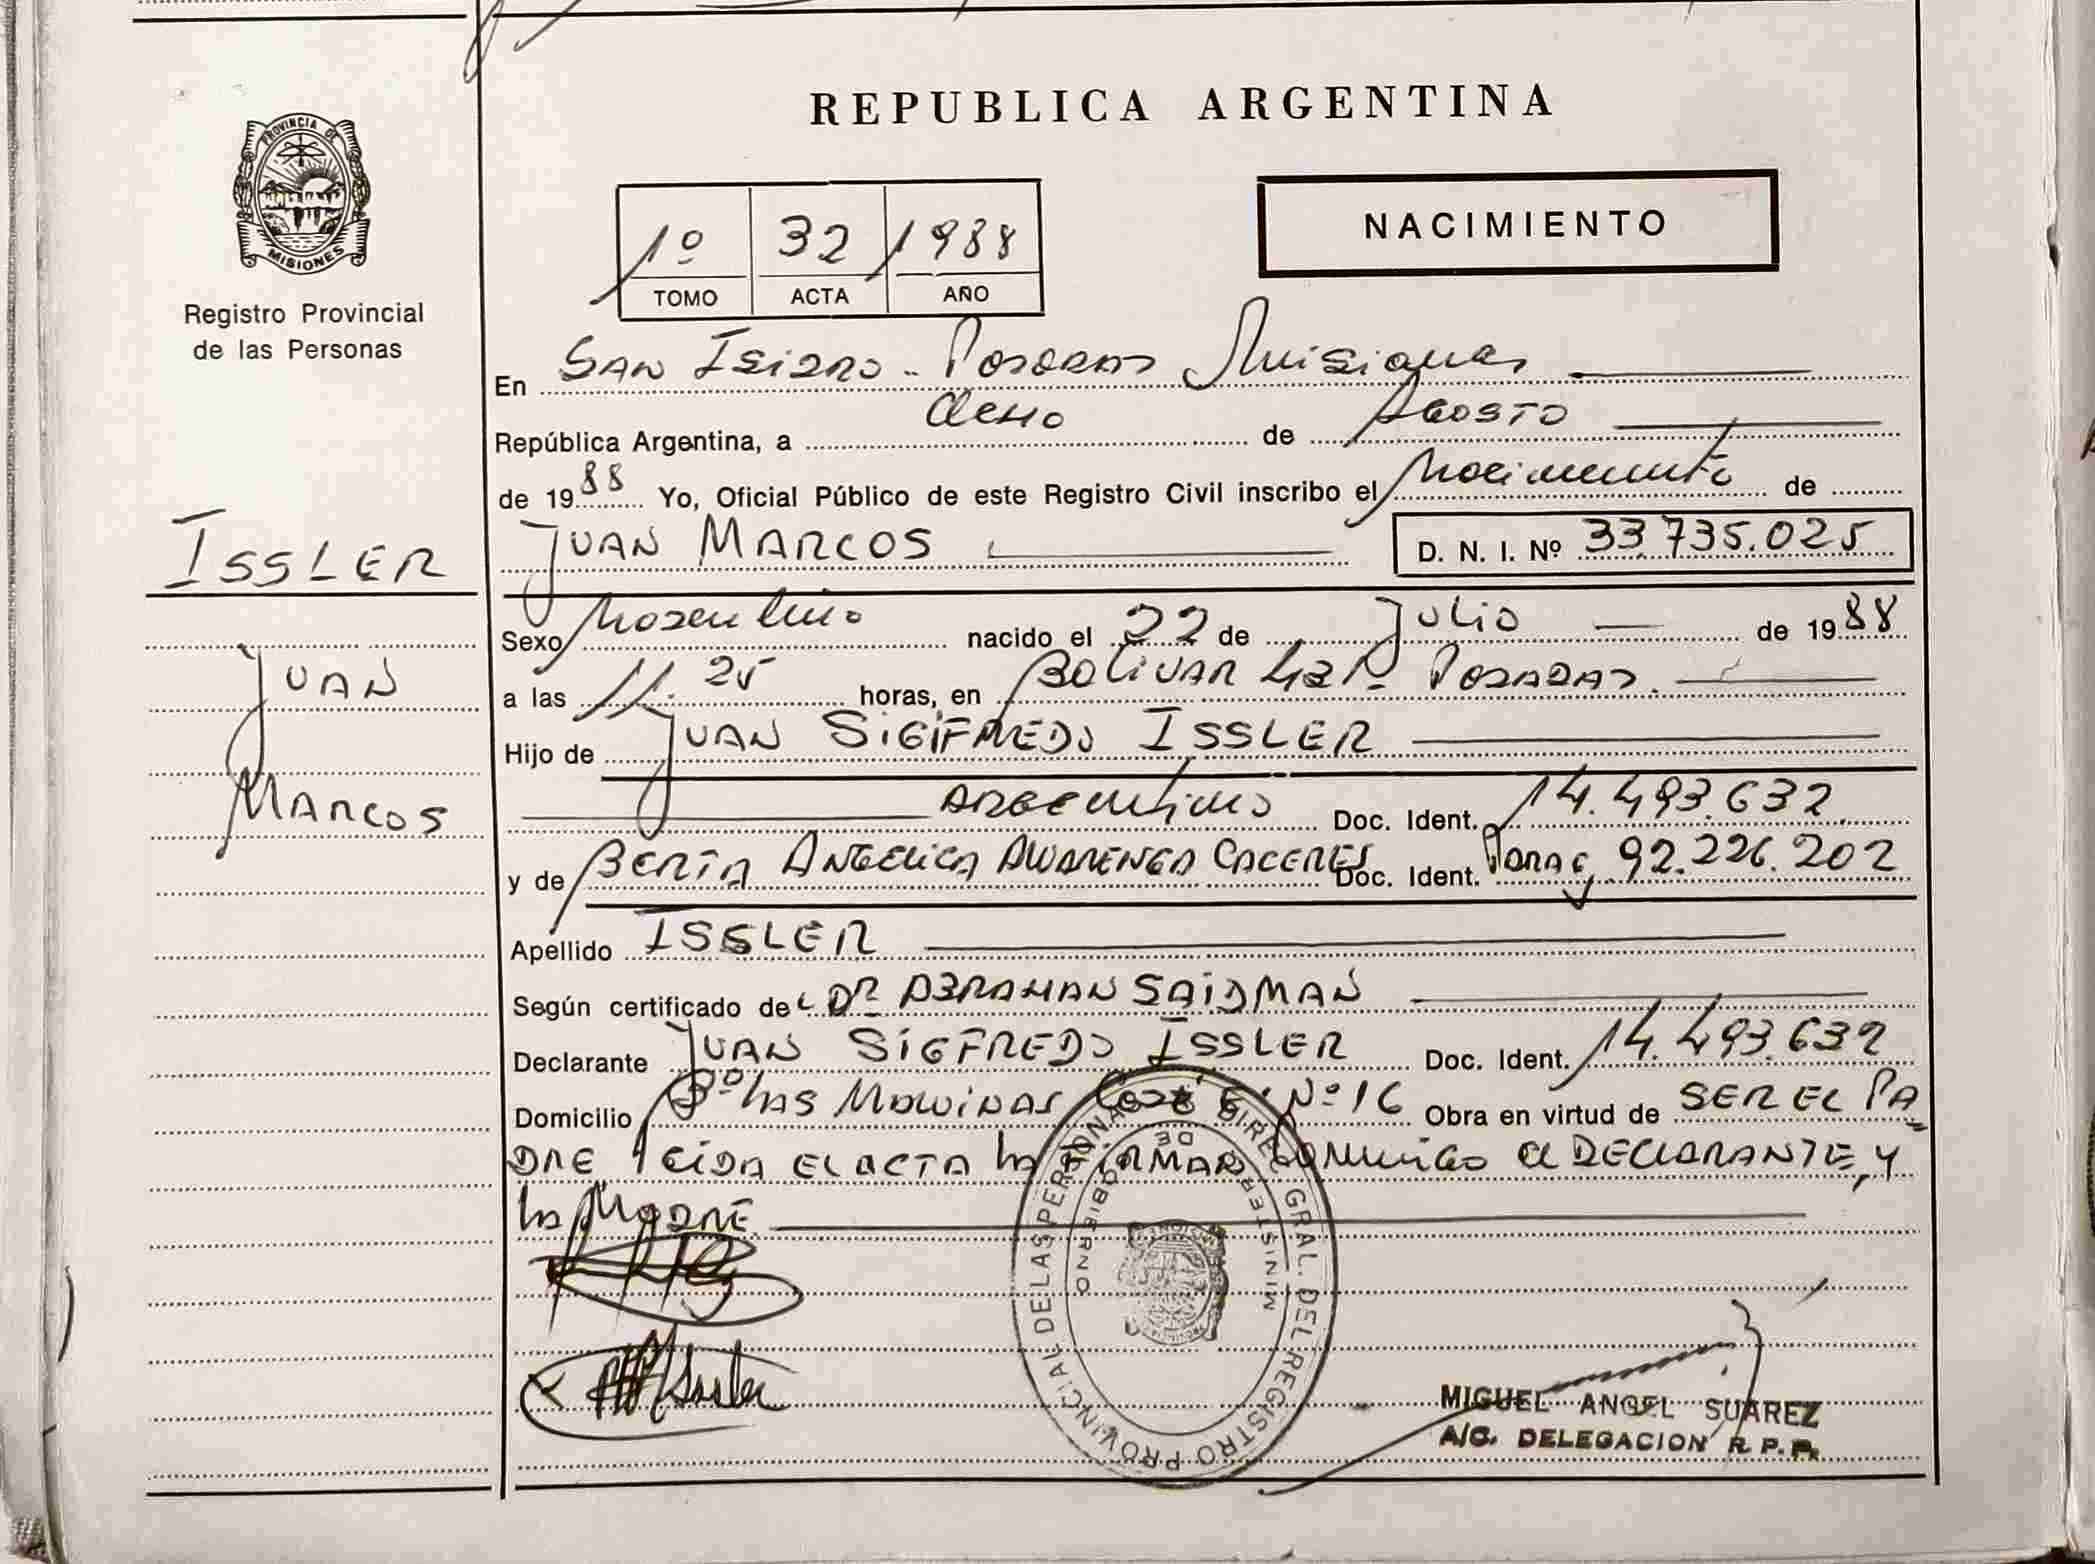 REPUBLICA ARGENTINA
PROVINCIA DE
MISIONES
Registro Provincial
de las Personas
1º 32 1988
TOMO ACTA AÑO
NACIMIENTO
En San Isidro - Posadas Misiones
República Argentina, a ocho de Agosto
de 1988 Yo, Oficial Público de este Registro Civil inscribo el Nacimiento de
Juan Marcos D. N. I. Nº 33.735.025
Issler
Juan
Marcos
Sexo Masculino nacido el 22 de Julio de 1988
a las 11.25 horas, en Bolivar Posadas.
Hijo de Juan Sigifredo Issler
Argentino Doc. Ident. 14.493.632
y de Berta Angelica Alvarenga Caceres Doc. Ident. Parag. 92.226.202
Apellido Issler
Según certificado de Dr Abraham Saidman
Declarante Juan Sigfredo Issler Doc. Ident. 14.493.632
Domicilio Bº Las Malvinas Nº 16 Obra en virtud de ser el pa
dre leida el acta la firman conmigo el declarante, y
la Madre
DIREC. GRAL. DEL REGISTRO PROVINCIAL DE LAS PERSONAS
MINISTERIO DE GOBIERNO
MIGUEL ANGEL SUAREZ
A/C. DELEGACION R. P. P.